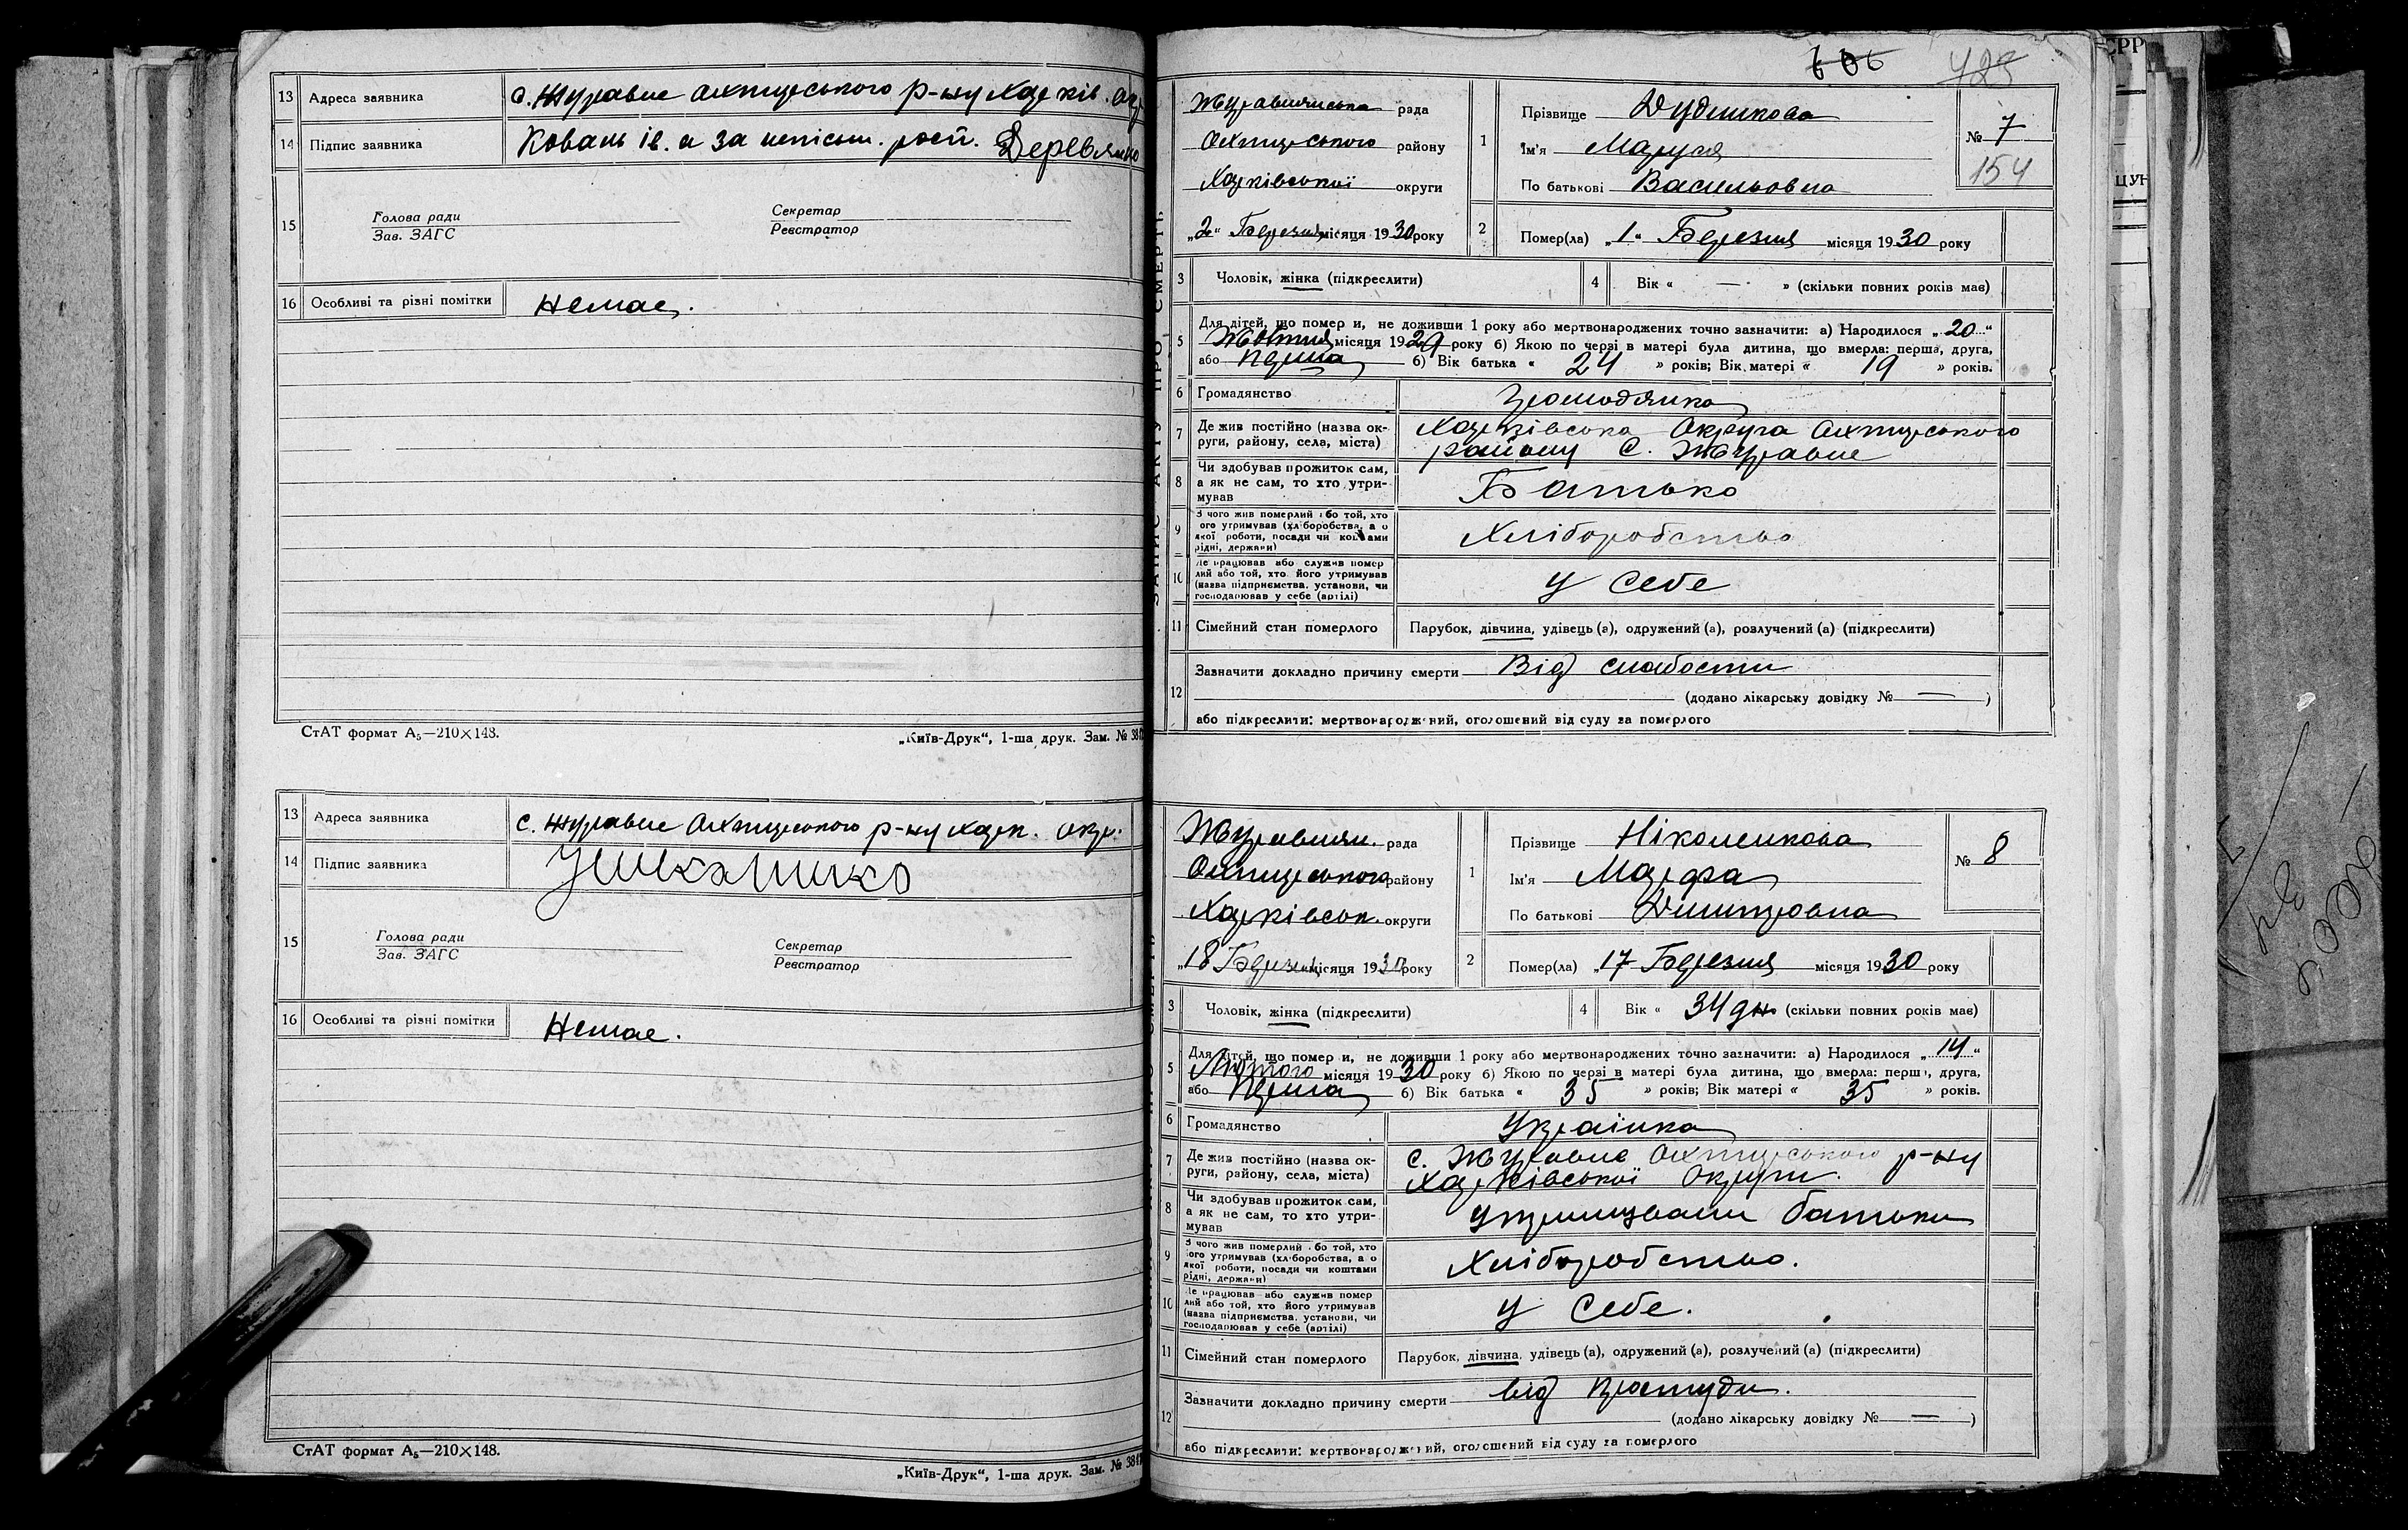 13 Адреса заявника с. Журавне Охтирського р-ну Харків. окр.
14 Підпис заявника Коваль Ів. а за неписьм. росп. Деревянко
15 Голова ради Секретар
Зав. ЗАГС Реєстратор
16 Особливі та різні помітки Немає.
СтАТ формат А5—210×148.
„Київ-Друк“, 1-ша друк. Зам. № 38
13 Адреса заявника с. Журавне Охтирського р-ну Харк. окр.
14 Підпис заявника
15 Голова ради Секретар
Зав. ЗАГС Реєстратор
16 Особливі та різні помітки Немає.
СтАТ формат А5—210×148.
„Київ-Друк“, 1-ша друк. Зам. № 38
606 483
ЗАПИС АКТУ ПРО СМЕРТЬ
Журавнянська рада
Охтирського району
Харківської округи
„2“ Березня місяця 1930 року
1 Прізвище Дудникова
Ім'я Маруся
По батькові Васильовна
№ 7
154
2 Помер(ла) „1“ Березня місяця 1930 року
3 Чоловік, жінка (підкреслити) 4 Вік « — » (скільки повних років має)
5 Для дітей, що помер и, не доживши 1 року або мертвонароджених точно зазначити: а) Народилося „20“
Жовтня місяця 1929 року б) Якою по черзі в матері була дитина, що вмерла: перша, друга,
або Перша б) Вік батька « 24 » років; Вік матері « 19 » років.
6 Громадянство Громодянка
7 Де жив постійно (назва ок-
руги, району, села, міста) Харківська Округа Охтирського
району С. Журавне
8 Чи здобував прожиток сам,
а як не сам, то хто утри-
мував Батько
9 З чого жив померлий або той, хто
ого утримував (хліборобства, а о
якої роботи, посади чи коштами
рідні, держави) Хліборобство
10 Де працював або служив помер
лий або той, хто його утримував
(назва підприємства, установи, чи
господарював у себе (артілі) У Себе
11 Сімейний стан померлого Парубок, дівчина, удівець (а), одружений (а), розлучений (а) (підкреслити)
12 Зазначити докладно причину смерти Від слабости
(додано лікарську довідку № — )
або підкреслити: мертвонароджений, оголошений від суду за померлого
Журавнян. рада
Охтирського району
Харківськ. округи
„18 Березня місяця 1930 року
1 Прізвище Ніколенкова
Ім'я Марфа
По батькові Дмитровна
№ 8
2 Помер(ла) „17 Березня місяця 1930 року
3 Чоловік, жінка (підкреслити) 4 Вік « 34 дн. (скільки повних років має)
5 Для дітей, що помер и, не доживши 1 року або мертвонароджених точно зазначити: а) Народилося „14“
Лютого місяця 1930 року б) Якою по черзі в матері була дитина, що вмерла: перша, друга,
або Перша б) Вік батька « 35 » років; Вік матері « 35 » років.
6 Громадянство Українка
7 Де жив постійно (назва ок-
руги, району, села, міста) с. Журавне Охтирського р-ну
Харківської Округи.
8 Чи здобував прожиток сам,
а як не сам, то хто утри-
мував Утримували батьки
9 З чого жив померлий або той, хто
ого утримував (хліборобства, а о
якої роботи, посади чи коштами
рідні, держави) Хліборобство.
10 Де працював або служив помер
лий або той, хто його утримував
(назва підприємства, установи, чи
господарював у себе (артілі) У Себе.
11 Сімейний стан померлого Парубок, дівчина, удівець (а), одружений (а), розлучений (а) (підкреслити)
12 Зазначити докладно причину смерти від Простуди.
(додано лікарську довідку № — )
або підкреслити: мертвонароджений, оголошений від суду за померлого